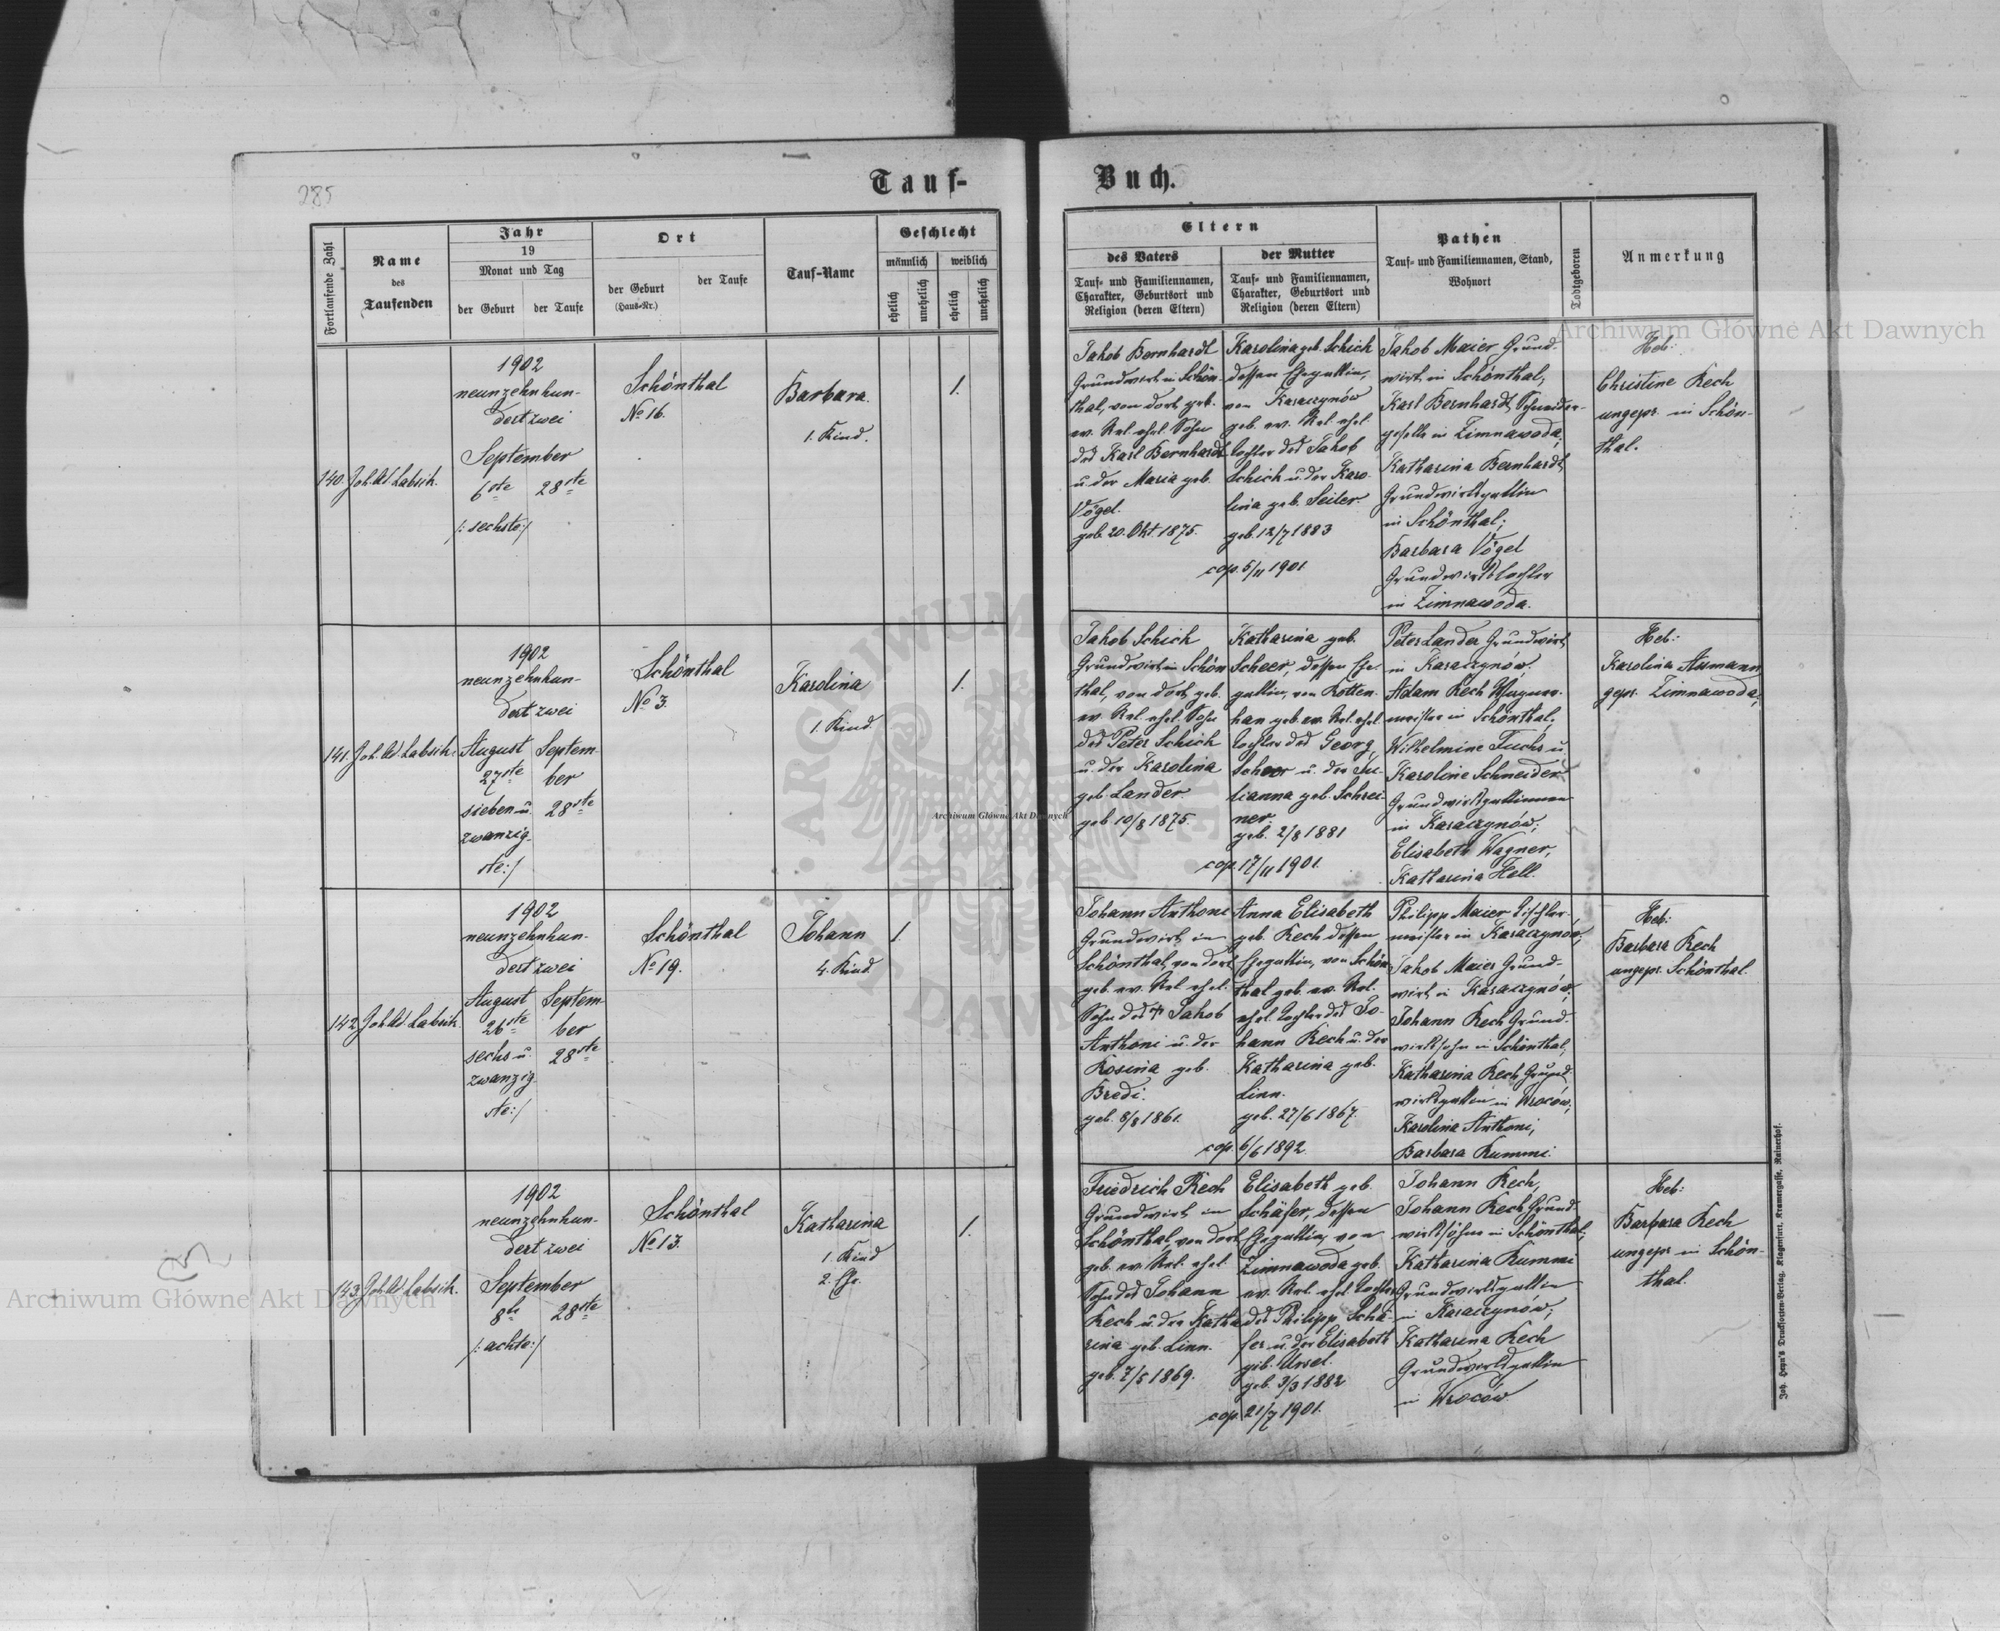 285
Tauf-
Buch.
Fortlaufende Zahl
Name
des
Taufenden
Jahr
19
Monat und Tag
der Geburt
der Taufe
Ort
der Geburt
(Haus-Nr.)
der Taufe
Tauf-Name
Geschlecht
männlich
weiblich
ehelich
unehelich
ehelich
unehelich
Eltern
des Vaters
Tauf- und Familiennamen,
Charakter, Geburtsort und
Religion (deren Eltern)
der Mutter
Tauf- und Familiennamen,
Charakter, Geburtsort und
Religion (deren Eltern)
Pathen
Tauf- und Familiennamen, Stand,
Wohnort
Todtgeboren
Anmerkung
140.
Joh. Ad. Labsik.
1902
neunzehnhun-
dert zwei
September
6ste
28ste
/: sechste :/
Schönthal
No 16.
Barbara.
1. Kind.
1.
Jakob Bernhardt
Grundwirt in Schön-
thal, von dort geb.
ev. Rel. ehel. Sohn
des Karl Bernhardt
u. der Maria geb.
Vögel.
geb. 20. Okt. 1875.
Karolina geb. Schick
dessen Ehegattin,
von Karaczynów
geb. ev. Rel. ehel.
Tochter des Jakob
Schick u. der Karo-
lina geb. Seiler.
geb. 12/7 1883
cop. 5/11 1901.
Jakob Maier Grund-
wirt in Schönthal,
Karl Bernhardt, Schneider-
geselle in Zimnawoda,
Katharina Bernhardt,
Grundwirtsgattin
in Schönthal;
Barbara Vögel
Grundwirtstochter
in Zimnawoda.
Heb:
Christine Rech
ungepr. in Schön-
thal.
141.
Joh. Ad. Labsik.
1902
neunzehnhun-
dert zwei
August
27ste
sieben u.
zwanzig-
ste :/
Septem-
ber
28ste
Schönthal
No 3.
Karolina
1. Kind
1.
Jakob Schick
Grundwirt in Schön
thal, von dort geb.
ev. Rel. ehel. Sohn
des Peter Schick
u. der Karolina
geb. Lander.
geb. 10/8 1875.
Katharina geb.
Scheer, dessen Ehe-
gattin, von Rotten-
han geb. ev. Rel. ehel.
Tochter des Georg
Scheer u. der Ju-
lianna geb. Schrei-
ner.
geb. 2/8 1881
cop. 17/11 1901.
Peter Lander Grundwirt
in Karaczynów,
Adam Rech Wagner-
meister in Schönthal,
Wilhelmine Fuchs u.
Karoline Schneider
Grundwirtsgattinnen
in Karaczynów;
Elisabeth Wagner,
Katharina Hell.
Heb:
Karolina Assmann
gepr. Zimnawoda,
142.
Joh. Ad. Labsik.
1902
neunzehnhun-
dert zwei
August
26ste
sechs u.
zwanzig-
ste :/
Septem-
ber
28ste
Schönthal
No 19.
Johann
4. Kind
1.
Johann Anthoni
Grundwirt in
Schönthal, von dort
geb. ev. Rel. ehel.
Sohn des + Jakob
Anthoni u. der
Rosina geb.
Bredi.
geb. 8/8 1861.
Anna Elisabeth
geb. Rech dessen
Ehegattin, von Schön
thal geb. ev. Rel.
ehel. Tochter des Jo-
hann Rech u. der
Katharina geb.
Linn.
geb. 27/6 1867.
cop. 6/6 1892
Philipp Maier Tischler-
meister in Karaczynów,
Jakob Maier Grund-
wirt in Karaczynów,
Johann Rech Grund-
wirtssohn in Schönthal,
Katharina Rech Grund
wirtsgattin in Wroców,
Karolina Anthoni,
Barbara Kummi
Heb:
Barbara Rech
ungepr. Schönthal.
143.
Joh. Ad. Labsik.
1902
neunzehnhun-
dert zwei
September
8te
28ste
/: achte :/
Schönthal
No 13.
Katharina
1. Kind
2. Ehe.
1.
Friedrich Rech
Grundwirt in
Schönthal, von dort
geb. ev. Rel. ehel.
Sohn des Johann
Rech u. der Katha
rina geb. Linn.
geb. 7/5 1869.
Elisabeth geb.
Schäfer, dessen
Ehegattin, von
Zimnawoda geb.
ev. Rel. ehel. Tochter
des Philipp Schä-
fer u. der Elisabeth
geb. Ursel.
geb. 3/3 1882
cop. 21/7 1901.
Johann Rech,
Johann Rech Grund-
wirtssöhne in Schönthal,
Katharina Kummi
Grundwirtsgattin
in Karaczynów;
Katharina Rech
Grundwirtsgattin
in Wroców
Heb:
Barbara Rech
ungepr. in Schön-
thal.
Joh. Heyn's Drucksorten-Verlag, Klagenfurt, Kramergasse, Rainerhof.
Archiwum Główne Akt Dawnych
Archiwum Główne Akt Dawnych
Archiwum Główne Akt Dawnych